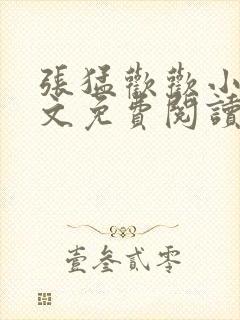 張猛歡歡小
文免費閱讀
壹叁貳零